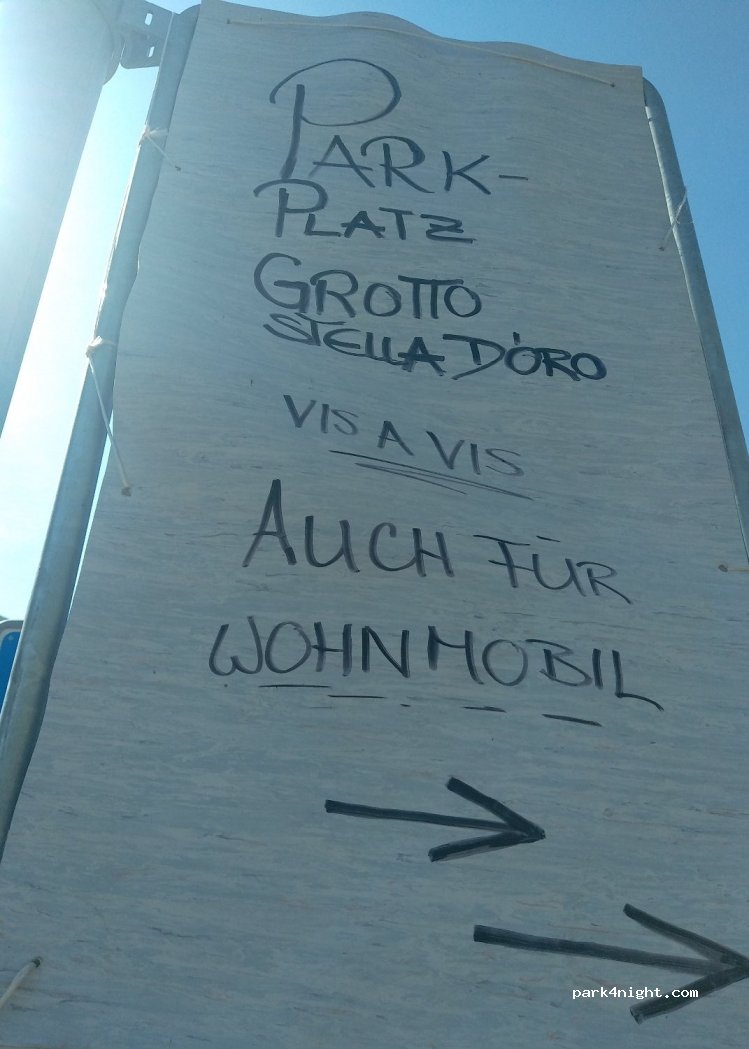 PARK-
PLATZ
GROTTO
STELLA D'ORO
VIS A VIS
AUCH FÜR
WOHNMOBIL
park4night.com